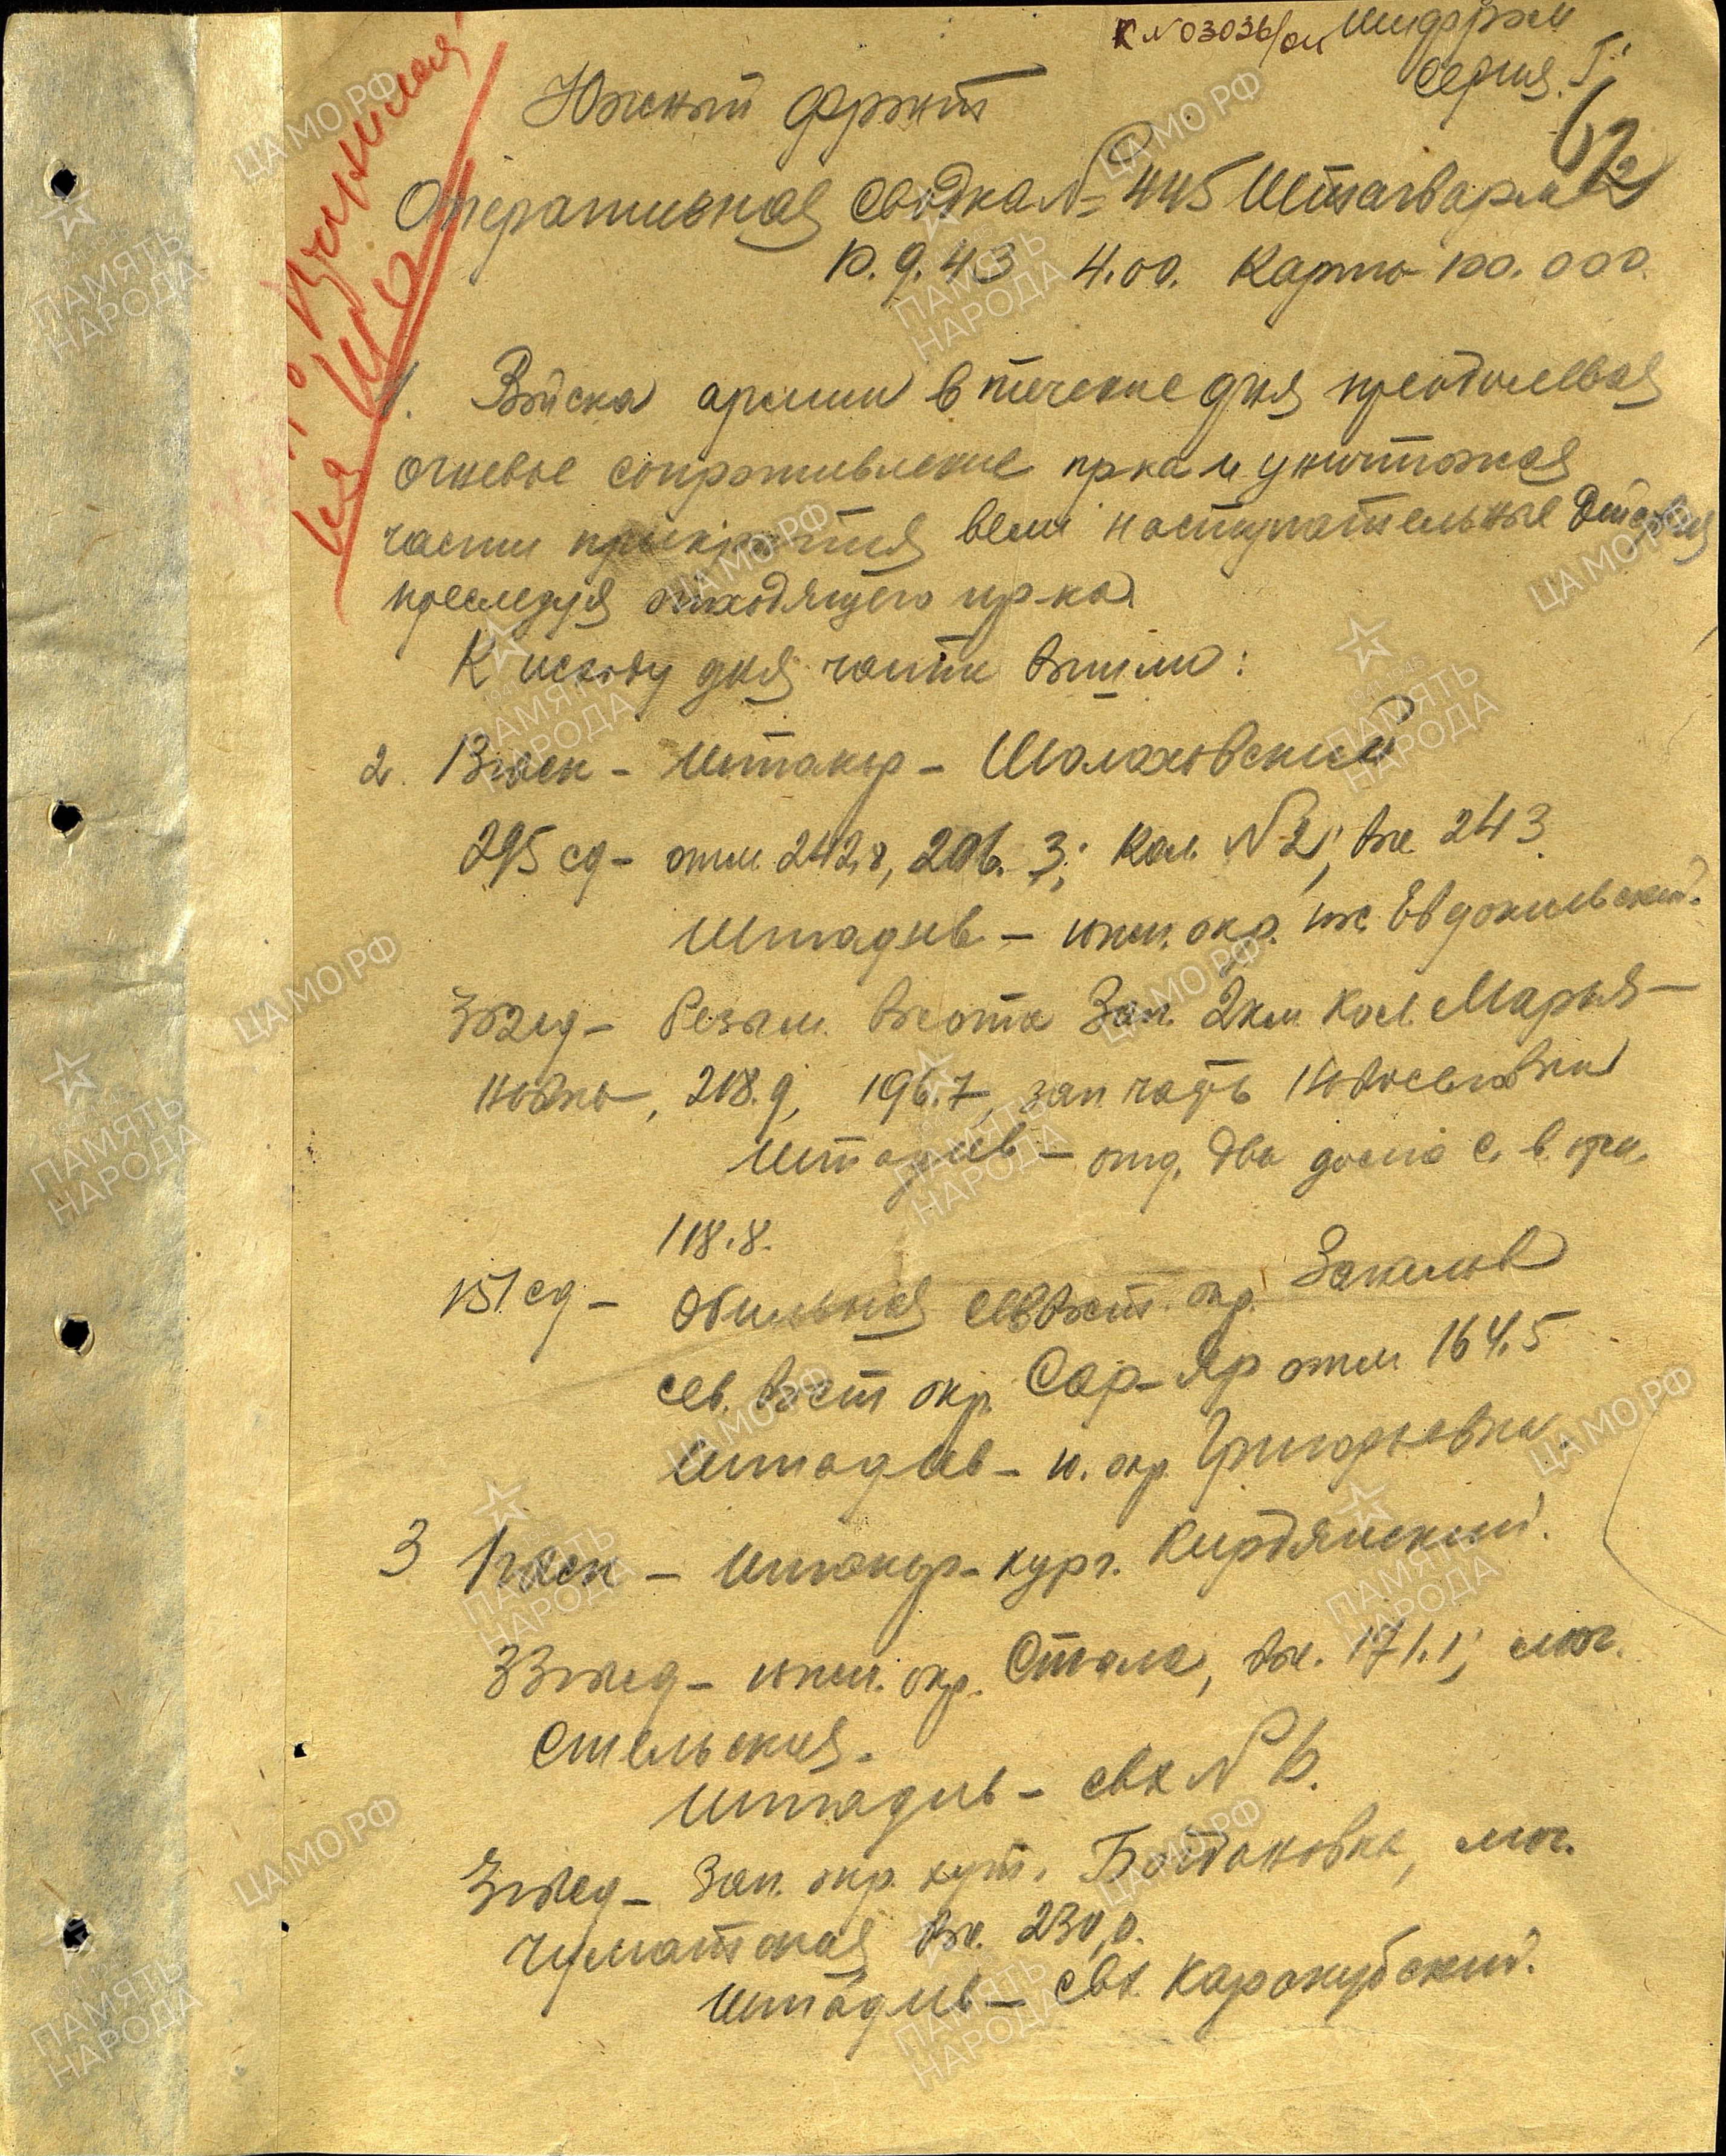 к №03036/ои Шифром
Серия "Г"
Южный фронт
62
Оперативная сводка №=445 Штаарм
10.9.43 4.00. Карта 100.000.
1. Войска армии в течение дня преодолевая
огневое сопротивление пр-ка и уничтожая
части прикрытия вели наступательные действия
преследуя отходящего пр-ка
К исходу дня части вышли:
2. 13гвск - Штакор - Шолоховский
295 сд - отм. 242,8, 206.3; Кол. №2; выс. 243.
Штадив - южн. окр.
3гвсд - безым. высота Зап. 2км Кол. Марья-
новка, 218.9, 196.7, зап часть Новоселовка
Штадив - отд. два дома с. в. отм.
118.8.
151 сд - Обильная сев вост. окр.
сев. вост окр. Сар-Яр отм 164.5
Штадив - ю. окр. Григорьевка.
3 1гвск - Штакор - кург.
33гвсд - южн. окр. Стыла, выс. 171.1; мог.
Стельская.
Штадив - свх № 6.
зап. окр. хут. Богдановка, мог.
Чуматская выс. 230,0.
Штадив - свх. Каракубский.
ЦАМО РФ
ПАМЯТЬ
НАРОДА